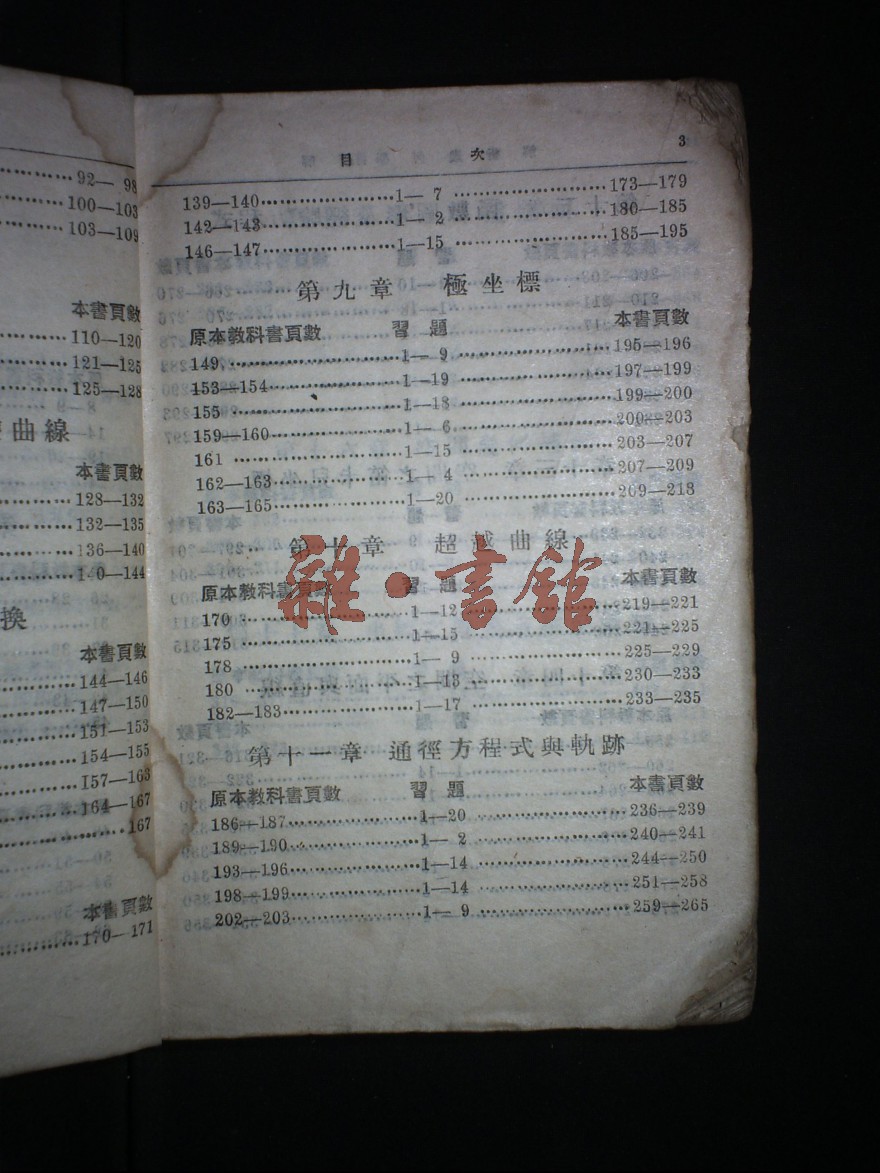 92—98
100—103
103—109
本書頁數
110—120
121—125
125—128
曲線
本書頁數
128—132
132—135
136—140
140—144
換
本書頁數
144—146
147—150
151—153
154—155
157—163
164—167
167
本書頁數
170—171
目 次 3
139—140 1—7 173—179
142—143 1—2 180—185
146—147 1—15 185—195
第九章 極坐標
原本教科書頁數 習題 本書頁數
149 1—9 195—196
153—154 1—19 197—199
155 1—18 199—200
159—160 1—6 200—203
161 1—15 203—207
162—163 1—4 207—209
163—165 1—20 209—218
第十章 超越曲線
原本教科書頁數 習題 本書頁數
170 1—12 219—221
175 1—15 221—225
178 1—9 225—229
180 1—13 230—233
182—183 1—17 233—235
第十一章 通徑方程式與軌跡
原本教科書頁數 習題 本書頁數
186—187 1—20 236—239
189—190 1—2 240—241
193—196 1—14 244—250
198—199 1—14 251—258
202—203 1—9 259—265
雜·書館